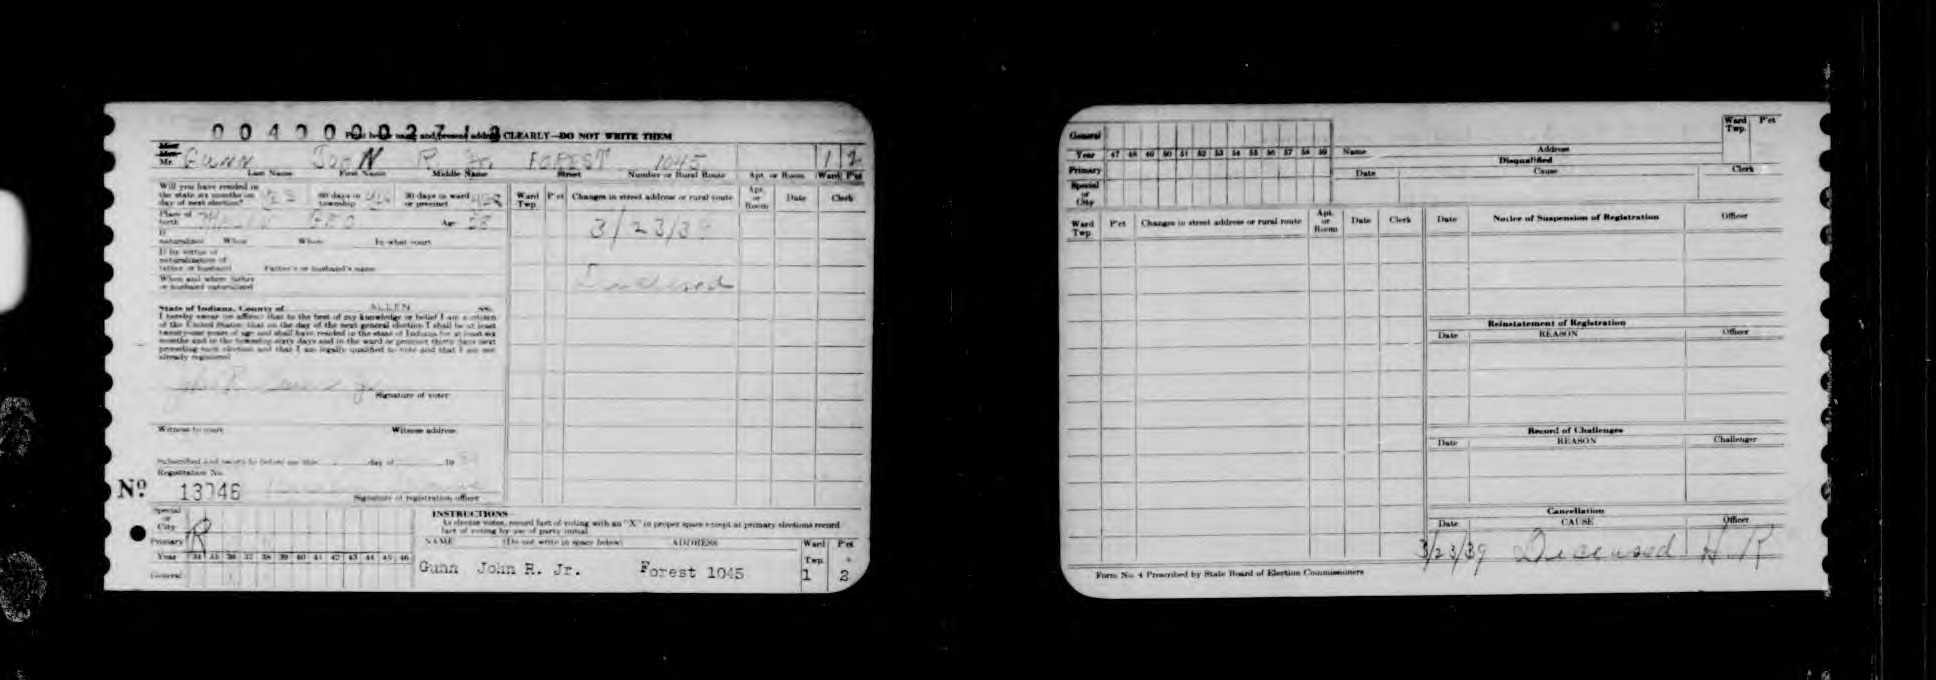 004000027 3
CLEARLY—DO NOT WRITE THEM
Mr. GUNN JOHN R. Jr. FOREST 1045 1 2
Last Name First Name Middle Name Street Number or Rural Route Apt. or Room Ward P'ct
Will you have resided in
the state six months on 60 days in 30 days in ward
day of next election? township or precinct
Ward Twp. P'ct Changes in street address or rural route Apt. or Room Date Clerk
Place of
birth Age 28
3/23/39
If
naturalized When Where In what court
If by virtue of
naturalization of
father or husband Father's or husband's name
When and where father
or husband naturalized
Deceased
State of Indiana, County of ALLEN SS:
I hereby swear (or affirm) that to the best of my knowledge or belief I am a citizen
of the United States; that on the day of the next general election I shall be at least
twenty-one years of age and shall have resided in the state of Indiana for at least six
months and in the township sixty days and in the ward or precinct thirty days next
preceding such election and that I am legally qualified to vote and that I am not
already registered
John R. Gunn Jr.
Signature of voter
Witness to mark Witness address
Subscribed and sworn to before me this day of 19
Registration No.
Nº 13046
Signature of registration officer
INSTRUCTIONS
As elector votes, record fact of voting with an "X" in proper space except at primary elections record
fact of voting by use of party initial
Special
or
City
R
Primary
Year 34 35 36 37 38 39 40 41 42 43 44 45 46
General
NAME (Do not write in space below) ADDRESS Ward Twp. P'ct
Gunn John R. Jr. Forest 1045 1 2
General
Year 47 48 49 50 51 52 53 54 55 56 57 58 59
Primary
Special
or
City
Name Address Ward Twp. P'ct
Disqualified
Date Cause Clerk
Ward Twp. P'ct Changes in street address or rural route Apt. or Room Date Clerk
Date Notice of Suspension of Registration Officer
Reinstatement of Registration
Date REASON Officer
Record of Challenges
Date REASON Challenger
Cancellation
Date CAUSE Officer
3/23/39 Deceased H R
Form No. 4 Prescribed by State Board of Election Commissioners